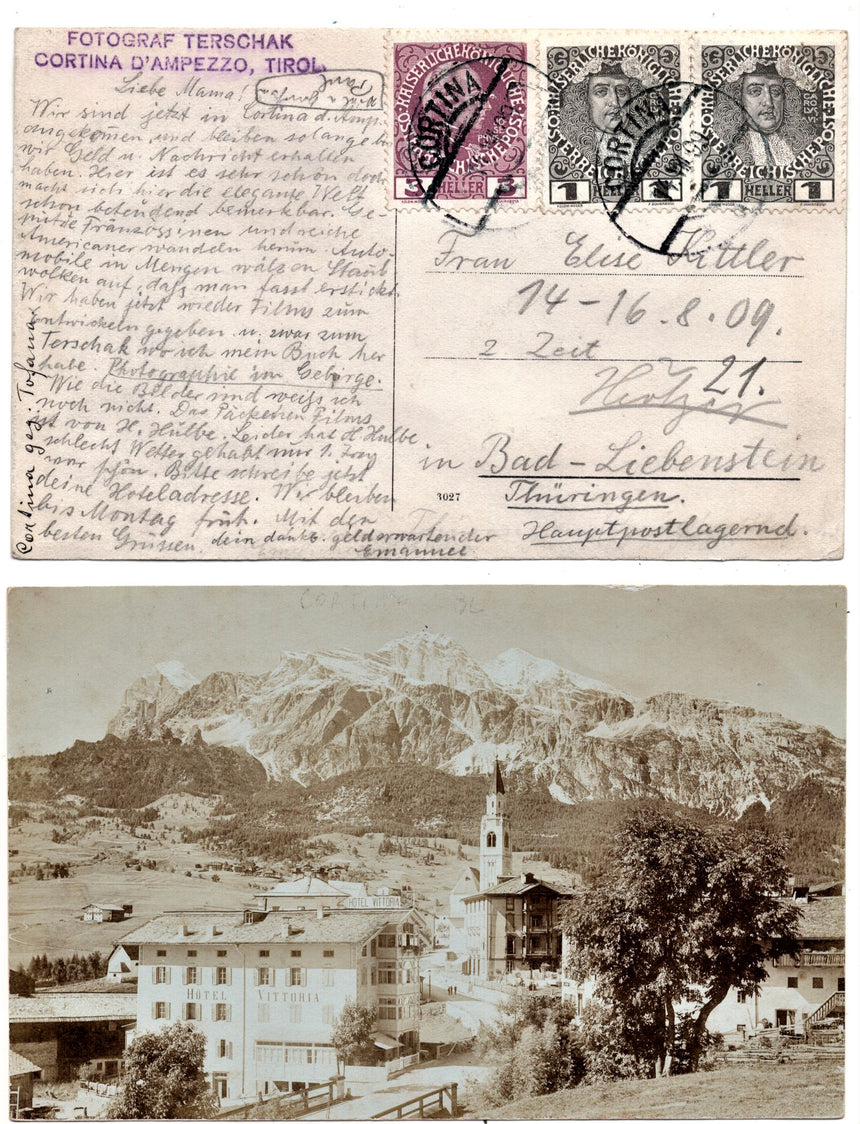 FOTOGRAF TERSCHAK
CORTINA D'AMPEZZO, TIROL.
Liebe Mama!
Wir sind jetzt in Cortina d. Amp.
angekommen und bleiben solange bis
wir Geld u. Nachricht erhalten
haben. Hier ist es sehr schön doch
macht sich hier die elegante Welt
schon bemerkbar. Ge-
putzte Französinnen und reiche
Americaner wandeln herum. Auto-
mobile in Mengen wälzen Staub
wolken auf, dass man fasst erstickt.
Wir haben jetzt wieder Films zum
entwickeln gegeben u. zwar zum
Terschak wo ich mein Buch her
habe. Photographie im Gebirge.
Wie die Bilder sind weiss ich
noch nicht. Das Päckchen Films
ist von H. Hülbe. Leider hat H. Hülbe
schlecht Wetter gehabt nur 1. Tag
war schön. Bitte schreibe jetzt
deine Hoteladresse. Wir bleiben
bis Montag früh. Mit den
besten Grüssen dein dankb. gelderwartender
Emanuel
Cortina geg. Tofana
SO·KAISERLICHEKÖNIGLICHE
ÖSTERREICHISCHE POST
3 HELLER 3
CORTINA
SO·KAISERLICHEKÖNIGLICHE
ÖSTERREICHISCHE POST
1 HELLER 1
CORTINA
SO·KAISERLICHEKÖNIGLICHE
ÖSTERREICHISCHE POST
1 HELLER 1
Frau Elise Kittler
14-16.8.09.
z Zeit
21.
in Bad-Liebenstein
Thüringen.
Hauptpostlagernd.
3027
CORTINA
HOTEL VITTORIA
HÔTEL VITTORIA